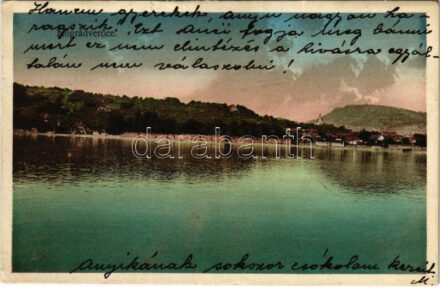 Hanem gyerekek, anyu nagyon ha-
ragszik. Ezt Anci fogja meg bánni
mert ez nem elintézés a hivásra egyál-
talán nem válaszolni!
Nógrádverőce.
darabanth
Anyikának sokszor csókolom kezét.
M.